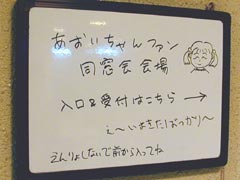 あずいちゃんファン
同窓会会場
入口&受付はこちら →
え〜いまきたばっかり〜
えんりょしないで前から入ってね